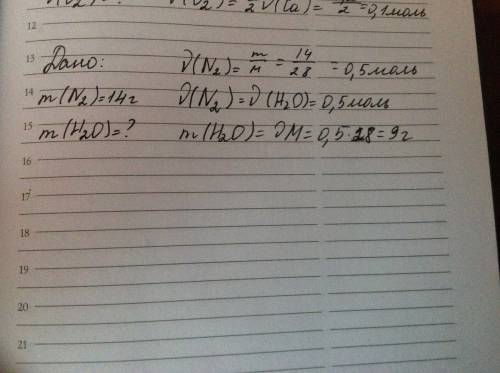 ν(O₂) = 1/2 ν(Ca) = 0,1 моль
12
13 Дано: ν(N₂) = m/M = 14/28 = 0,5 моль
14 m(N₂) = 14 г ν(N₂) = ν(H₂O) = 0,5 моль
15 m(H₂O) = ? m(H₂O) = νM = 0,5 · 18 = 9 г
16
17
18
19
20
21